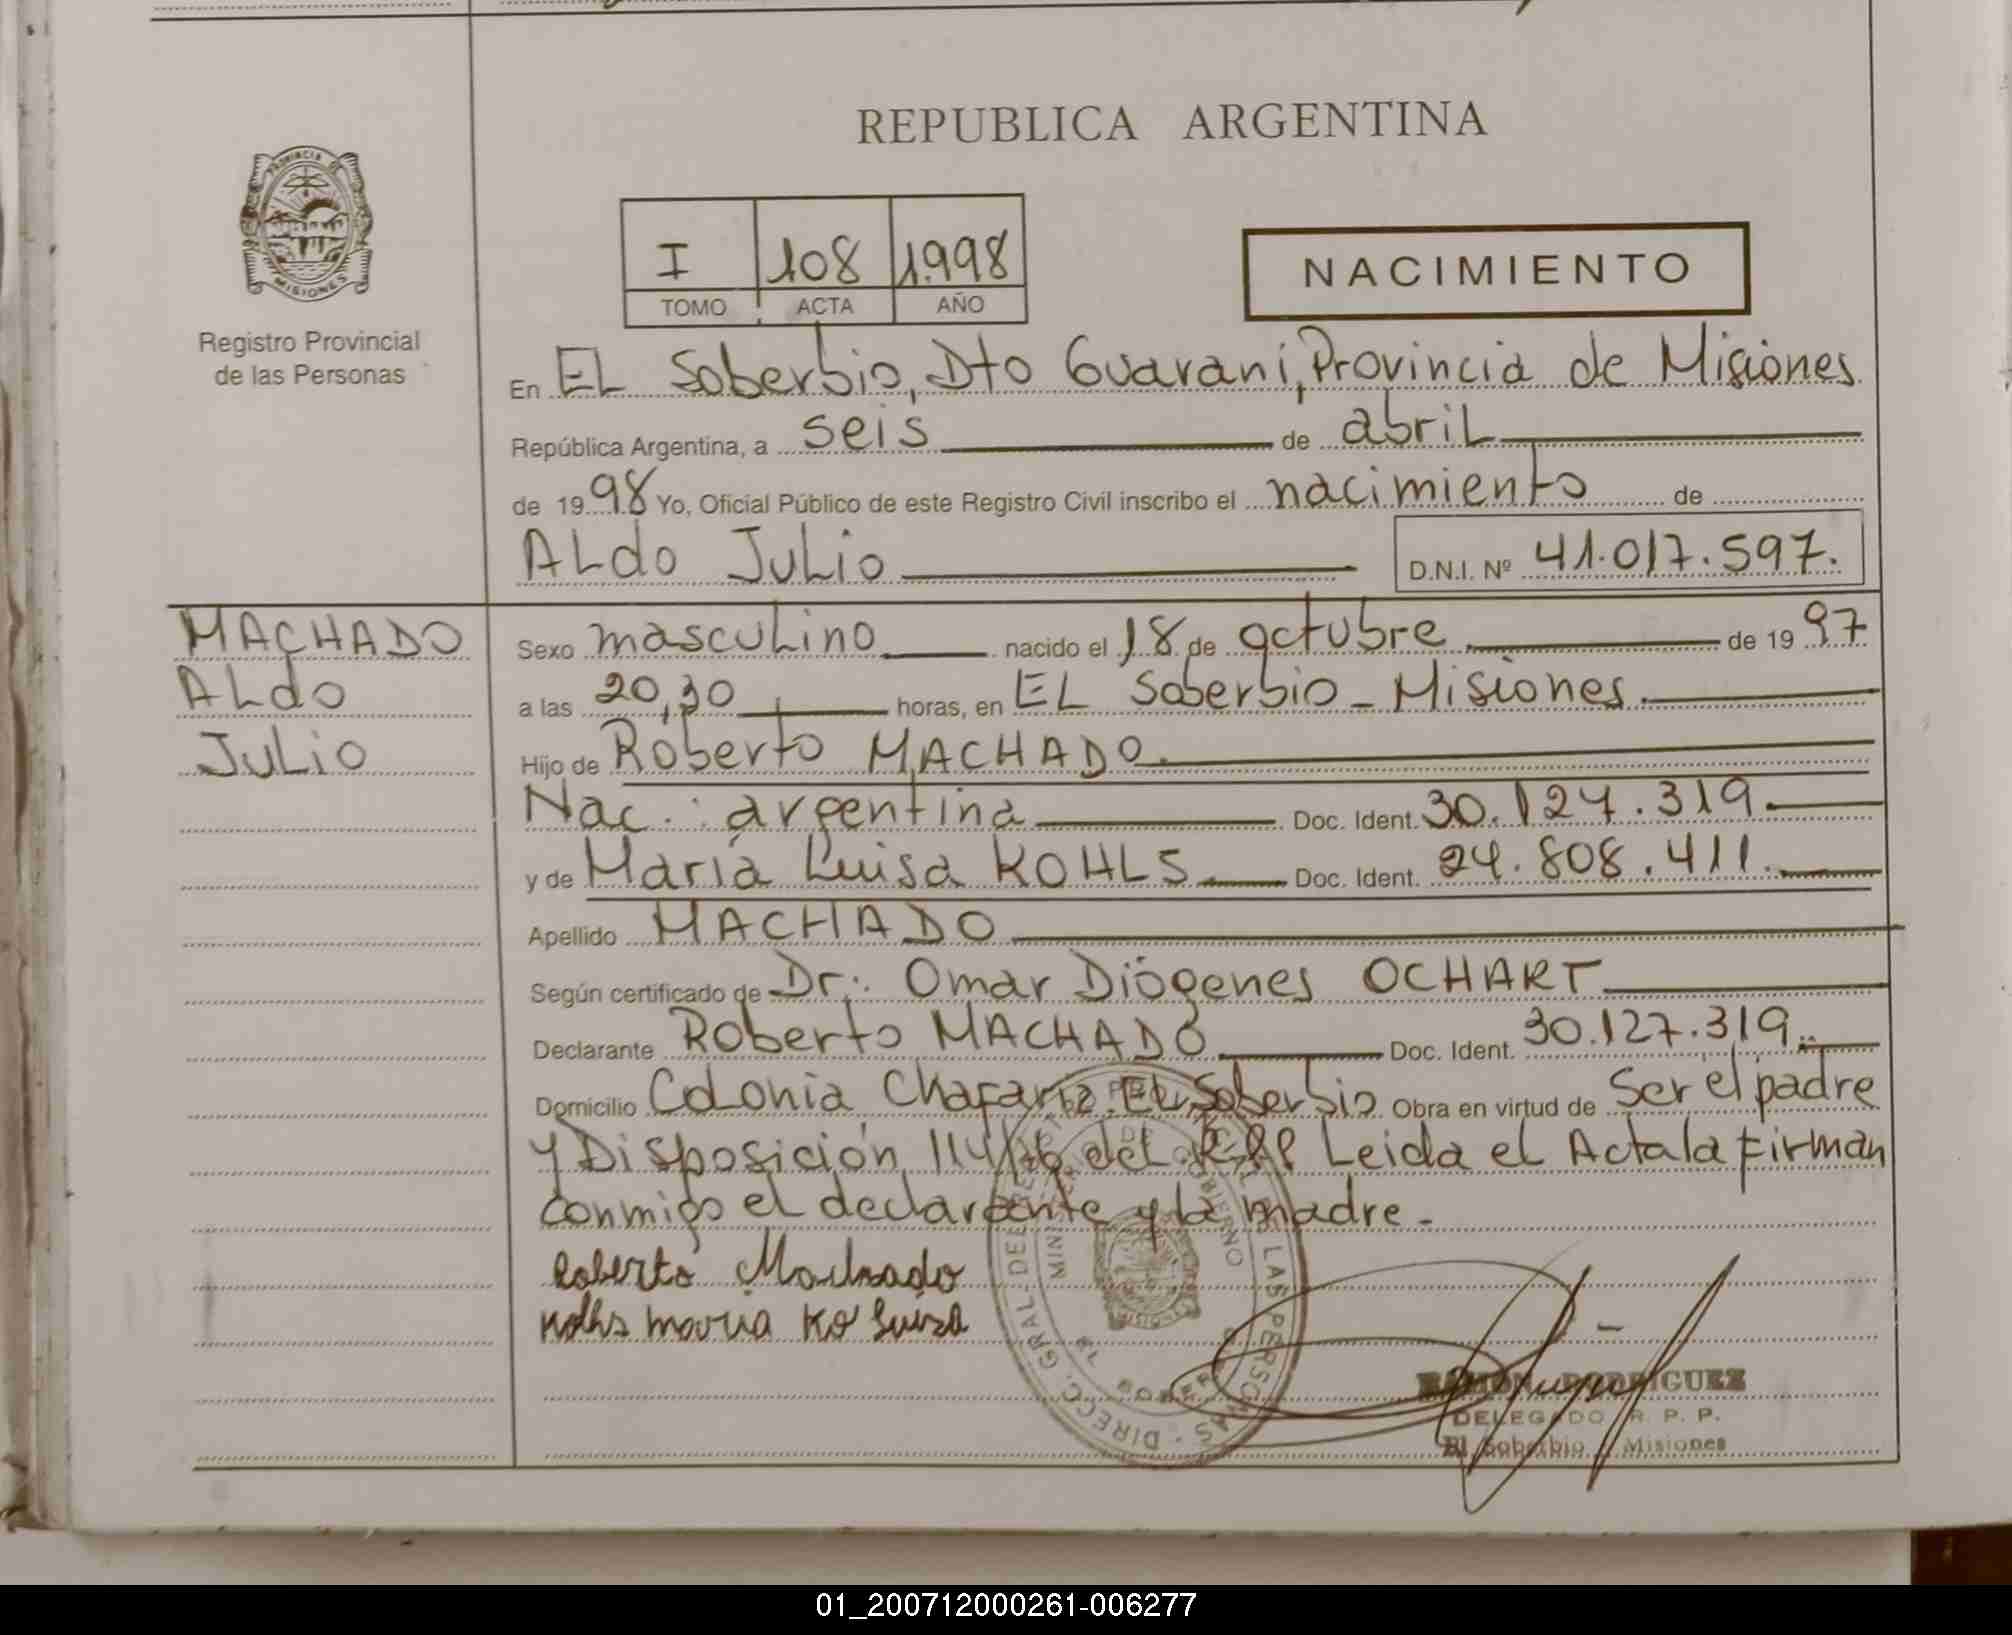 REPUBLICA ARGENTINA
PROVINCIA DE
MISIONES
Registro Provincial
de las Personas
I 108 1.998
TOMO ACTA AÑO
NACIMIENTO
En EL Soberbio, Dto Guaraní, Provincia de Misiones
República Argentina, a seis de abril
de 1998 Yo, Oficial Público de este Registro Civil inscribo el nacimiento de
ALdo JuLio D.N.I. Nº 41.017.597.
MACHADO
ALdo
JuLio
Sexo mascuLino nacido el 18 de octubre de 1997
a las 20,30 horas, en EL Soberbio - Misiones
Hijo de Roberto MACHADO
Nac.: argentina Doc. Ident. 30.127.319
y de María Luisa KOHLS Doc. Ident. 24.808.411.
Apellido MACHADO
Según certificado de Dr.: Omar Diógenes OCHART
Declarante Roberto MACHADO Doc. Ident. 30.127.319
Domicilio Colonia Chafariz. EL Soberbio Obra en virtud de Ser el padre
y Disposición 114/76 del R.P.P Leida el Acta la firman
conmigo el declarante y la madre.-
Roberto Machado
Kolhs maria Ko Luiza
DIRECC. GRAL. DEL REGISTRO PROVINCIAL DE LAS PERSONAS
MINISTERIO DE GOBIERNO
RAMÓN RODRIGUEZ
DELEGADO R. P. P.
El Soberbio - Misiones
01_200712000261-006277